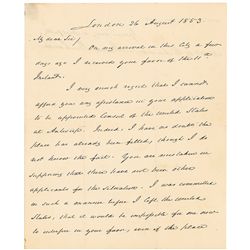 London 26 August 1853.
My dear Sir/
On my arrival in this City a few
days ago I received your favor of the 11th
Instant.
I very much regret that I cannot
afford you any assistance in your application
to be appointed Consul of the United States
at Antwerp. Indeed, I have no doubt the
place has already been filled, though I do
not know the fact. You are mistaken in
supposing that there have not been other
applicants for the situation. I was committed
in such a manner before I left the United
States, that it would be impossible for me now
to interfere in your favor, even if the place